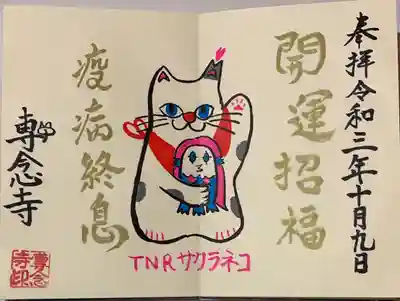 奉拝令和三年十月九日
開運招福
疫病終息
TNRサクラネコ
專念寺
專念寺印